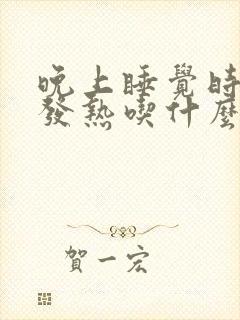 晚上睡覺時
發熱喫什麼
賀一宏